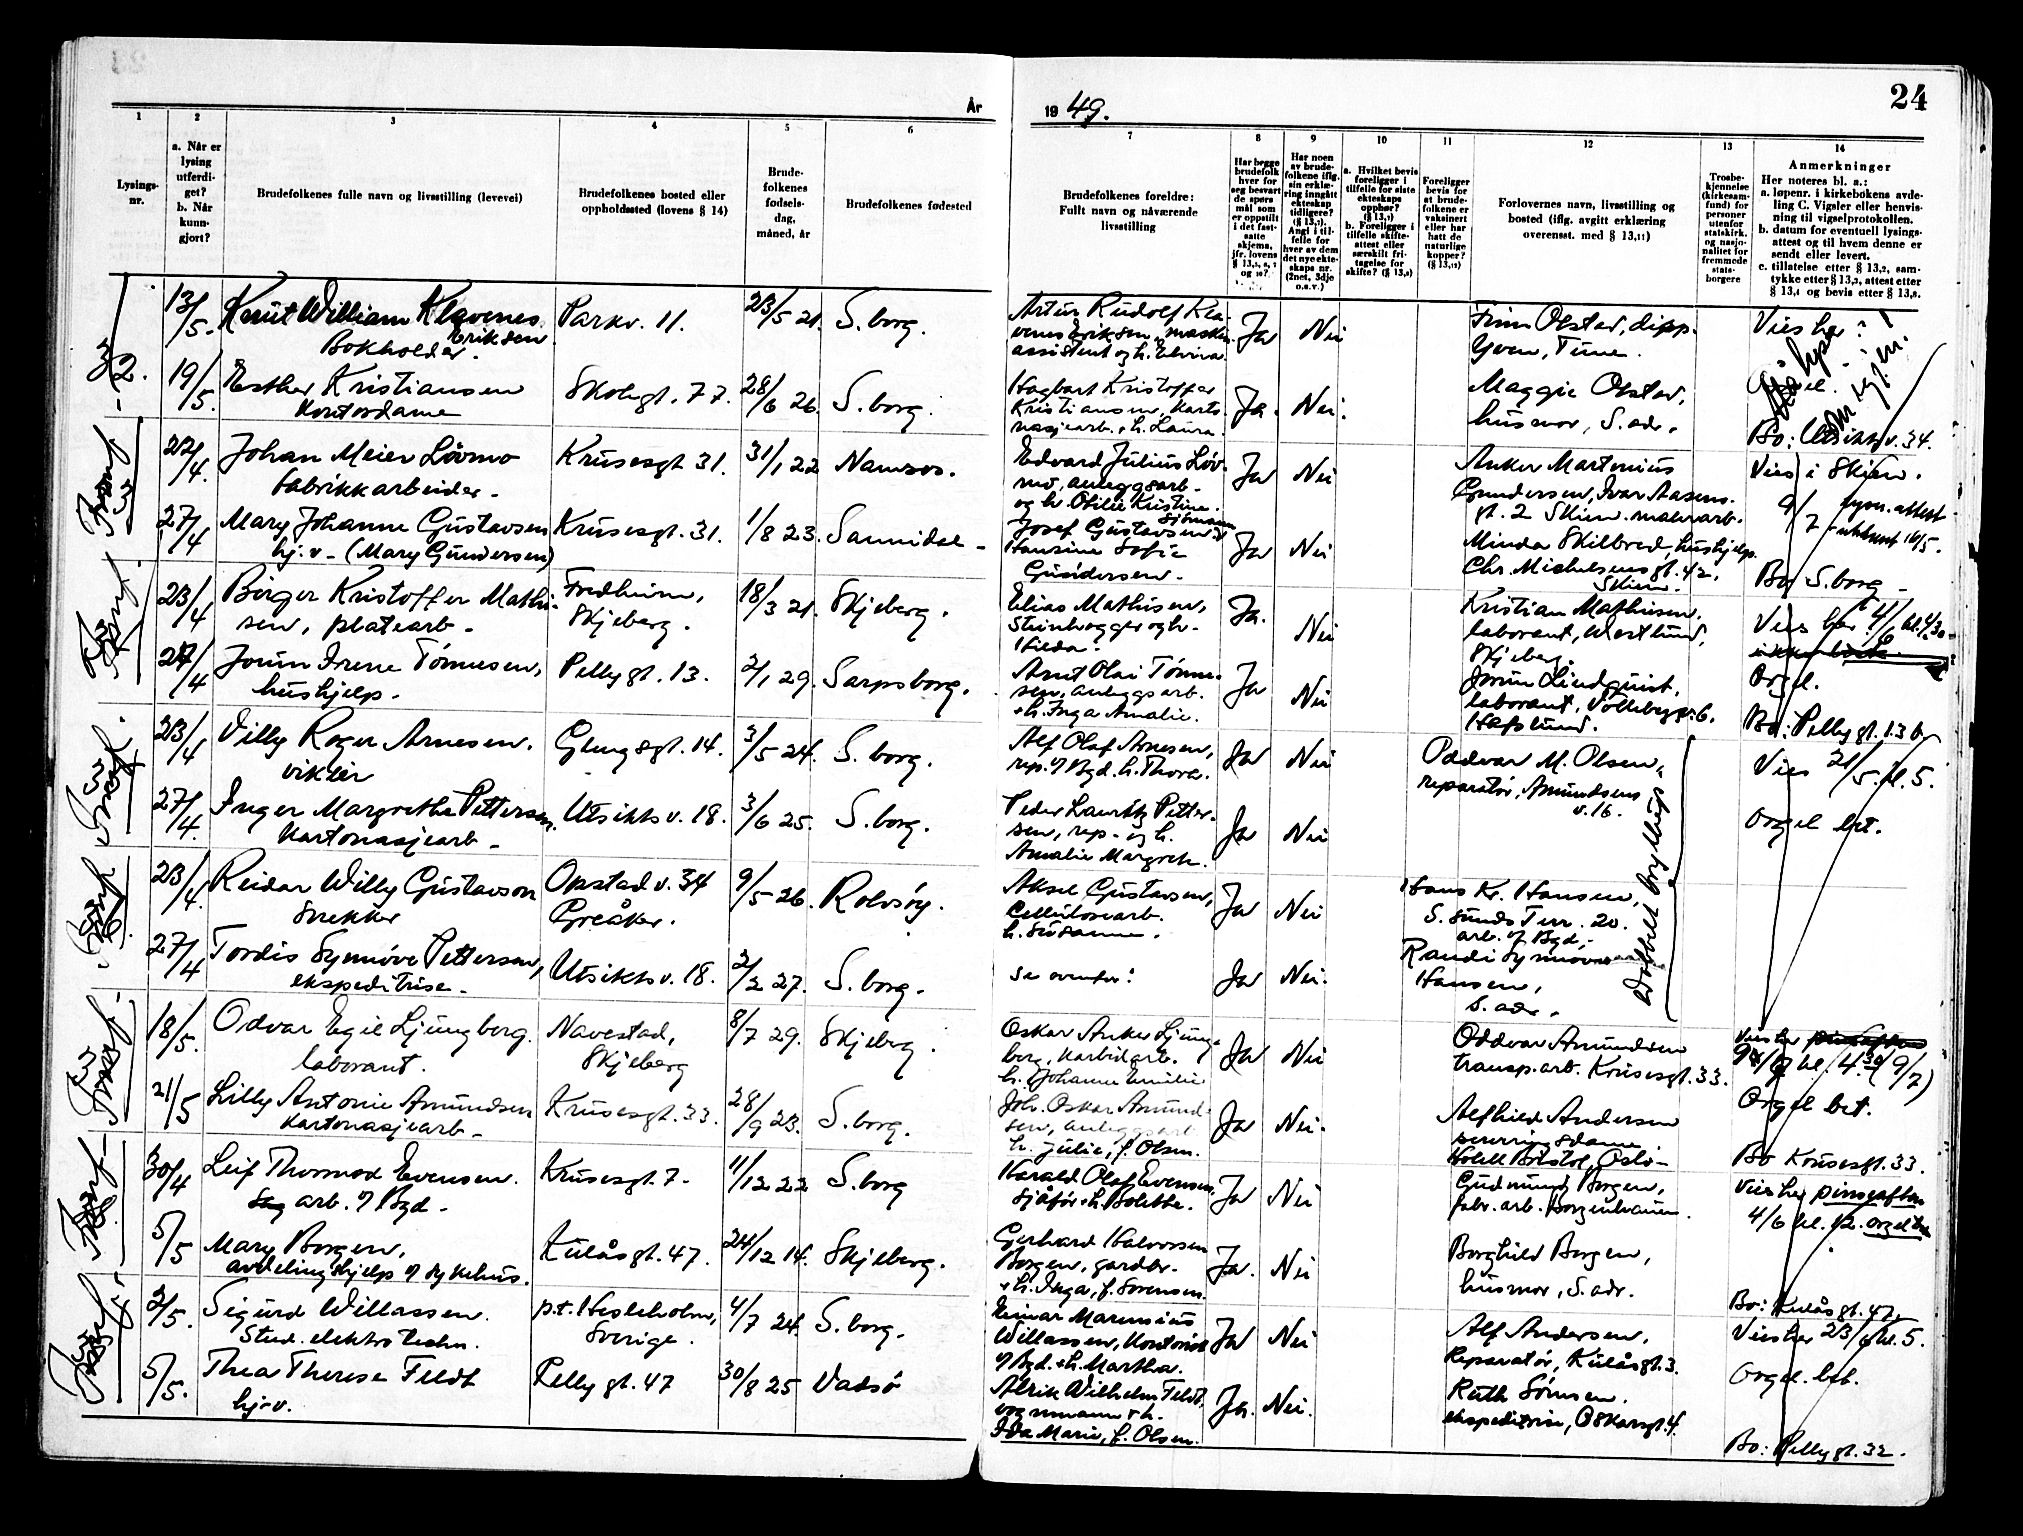 År
19 49.
24
1
2
3
4
5
6
7
8
9
10
11
12
13
14
Lysings-
nr.
a. Når er
lysing
utferdi-
get?
b. Når
kunn-
gjort?
Brudefolkenes fulle navn og livsstilling (levevei)
Brudefolkenes bosted eller
oppholdssted (lovens § 14)
Brude-
folkenes
fødsels-
dag,
måned, år
Brudefolkenes fødested
Brudefolkenes foreldre:
Fullt navn og nåværende
livsstilling
Har begge
brudefolk
hver for
seg besvart
de spørs-
mål som
er oppstilt
i det fast-
satte
skjema,
jfr. lovens
Har noen
av brude-
folkene iflg.
sin erklæ-
ring inngått
ekteskap
tidligere?
Angi i til-
felle for
hver av dem
det nye ekte-
skaps nr.
(2net, 3dje
o.s.v.)
a. Hvilket bevis
foreligger i
tilfelle for siste
ekteskaps
opphør?
b. Foreligger i
tilfelle skifte-
attest eller
særskilt fri-
tagelse for
Foreligger
bevis for
at brude-
folkene er
vaksinert
eller har
hatt de
naturlige
kopper?
Forlovernes navn, livsstilling og
bosted (iflg. avgitt erklæring
overensst. med § 13,11)
Trosbe-
kjennelse
(kirkesam-
fund) for
personer
utenfor
statskirk.
og nasjo-
nalitet for
fremmede
stats-
borgere
Anmerkninger
Her noteres bl. a.:
a. løpenr. i kirkebokens avde-
ling C. Vigsler eller henvis-
ning til vigselprotokollen.
b. datum for eventuell lysings-
attest og til hvem denne er
sendt eller levert.
c. tillatelse etter § 13,2, sam-
tykke etter § 13,3, attest etter
2. 13/5. Knut William Klavenes Eriksen Parkv. 11. 23/5 21. S.borg.
Bokholder.
Artur Rudolf Kla-
venes Eriksen, maskin
assistent og h. Elvira.
Ja Nei
Finn Olstad, dipp.
Tune.
Vies her
19/5. Esther Kristiansen Skolegt. 77. 28/6 26. S.borg.
Kontordame
Hagbart Kristoffer
Kristiansen, karto-
nasjearb. + h. Laura.
Ja. Nei.
Maggie Olstad,
husmor, S. adr.
Bo: Utsiktsv. 34.
22/4. Johan Meier Lövmo Krusesgt 31. 31/1 22 Namsos.
fabrikkarbeider.
Edvard Julius Löv-
mo, anleggsarb.
og h. Otilie Kristine.
Ja Nei
Anker Martinius
Gundersen, Ivar Aasens
gt. 2 Skien. malerarb.
Vies i Skien.
27/4 Mary Johanne Gustavsen Krusesgt. 31. 1/8 23. Sannidal
hj.v. (Mary Gundersen)
Josef Gustavsen
Hansine Sofie
Gundersen.
Ja Nei
Minda Skilbred, hushjelp.
Chr. Michelsens gt. 42,
Skien.
9/7 lysn. attest
utstedt 16/5.
Bo S.borg
23/4 Birger Kristoffer Mathi- Fredheim, 18/3 21. Skjeberg.
sen, platearb. Skjeberg.
Elias Mathisen,
Steinhogger og h.
Hilda.
Ja. Nei
Kristian Mathisen,
laborant,
Skjeberg.
Vies her 4/6 kl. 4.30
27/4 Jorun Irene Tönnesen, Pellygt. 13. 2/1 29. Sarpsborg.
hushjelp.
Arnt Olai Tönne-
sen, anleggsarb.
+ h. Inga Amalie.
Ja Nei
Jorun Lindquist,
laborant, Vollebergv. 6.
Hafslund.
Orgel.
Bo: Pellygt. 13 b
23/4 Villy Roger Arnesen. Glengsgt. 14. 3/5 24. S.borg.
vikler
Alf Olaf Arnesen,
rep. v/ Bgd. h. Thora.
Ja Nei
Oddvar M. Olsen,
reparatör, Amundsens
v. 16.
Vies 21/5. kl. 5.
Dobbelt bryllup
27/4. Inger Margrethe Pettersen. Utsiktsv. 18. 3/6 25. S.borg.
Kartonasjearb.
Peder Lauritz Petter-
sen, rep. og h.
Amalie Margrete.
Ja Nei
Orgel bet.
23/4. Reidar Willy Gustavson Opstadv. 34 9/5 26. Rolvsöy.
Snekker Greåker.
Aksel Gustavsen,
Cellulosearb.
h. Susanne.
Ja Nei
Hans Kr. Hansen,
S. Sunds Terr. 20.
arb. v/ Bgd.
27/4 Tordis Synnöve Pettersen, Utsiktsv. 18. 2/2 27. S.borg.
ekspeditrise.
se ovenfor!
Ja Nei.
Randi Synnöve
Hansen,
S. adr.
18/5. Odvar Egil Ljungberg. Navestad, 8/7 29. Skjeberg.
laborant. Skjeberg
Oskar Anker Ljung-
berg, karbidarb.
h. Johanne Emilie
Ja Nei
Oddvar Amundsen
transp.arb. Krusesgt. 33.
Vies her
kl. 4.30 (9/7)
21/5 Lilly Antonie Amundsen Krusesgt. 33. 28/9 23. S.borg.
Kartonasjearb.
Joh. Oskar Amund-
sen, anleggsarb
h. Julie, f. Olsen.
Ja Nei.
Alfhild Andersen
serveringsdame
Hotell Bristol, Oslo
Orgel bet.
Bo Krusesgt. 33.
30/4 Leif Thormod Evensen. Krusesgt. 7. 11/12 22 S.borg
arb. v/ Bgd.
Harald Olaf Evensen,
sjåför + h. Bolette.
Ja Nei
Gudmund Borgen,
fabr. arb. Borgenhaugen.
Vies her pinseaften
4/6 kl. 12. orgel bet
5/5 Mary Borgen, Kulåsgt. 47. 24/12 14. Skjeberg.
avdelingshjelp v/ sykehus.
Gerhard Halvorsen
Borgen, gardbr.
+ h. Inga, f. Sörensen.
Ja. Nei
Borghild Borgen,
husmor, S. adr.
Bo: Kulåsgt. 47.
2/5. Sigurd Willassen. p.t. Hessleholm, 4/7 24. S.borg.
Stud. elektrotechn. Sverige.
Einar Marinius
Willassen, kontorist
v/ Bgd. + h. Martha.
Ja Nei
Alf Andersen,
Reparatör, Kulåsgt. 3.
Vies her 23/6 kl. 5.
5/5. Thea Therese Feldt Pellygt. 47 30/8 25 Vadsö
hj.v.
Alrik Wilhelm Feldt,
vognmann + h.
Ida Marie, f. Olsen.
Ja. Nei.
Ruth Sörnsen.
ekspeditrise, Oskarsgt. 4.
Orgel. bet.
Bo: Pellygt. 32.